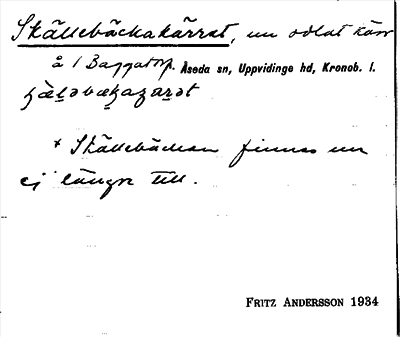 Skällebäckakärret, en odlat kärr
å / Baggatorp. Åseda sn, Uppvidinge hd, Kronob. l.
* Skällebäcken finnes nu
ej längre till.
FRITZ ANDERSSON 1934